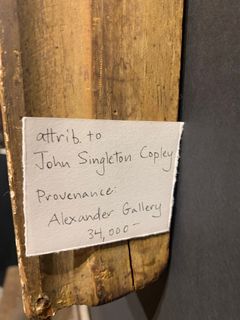 attrib. to
John Singleton Copley
Provenance:
Alexander Gallery
34,000—